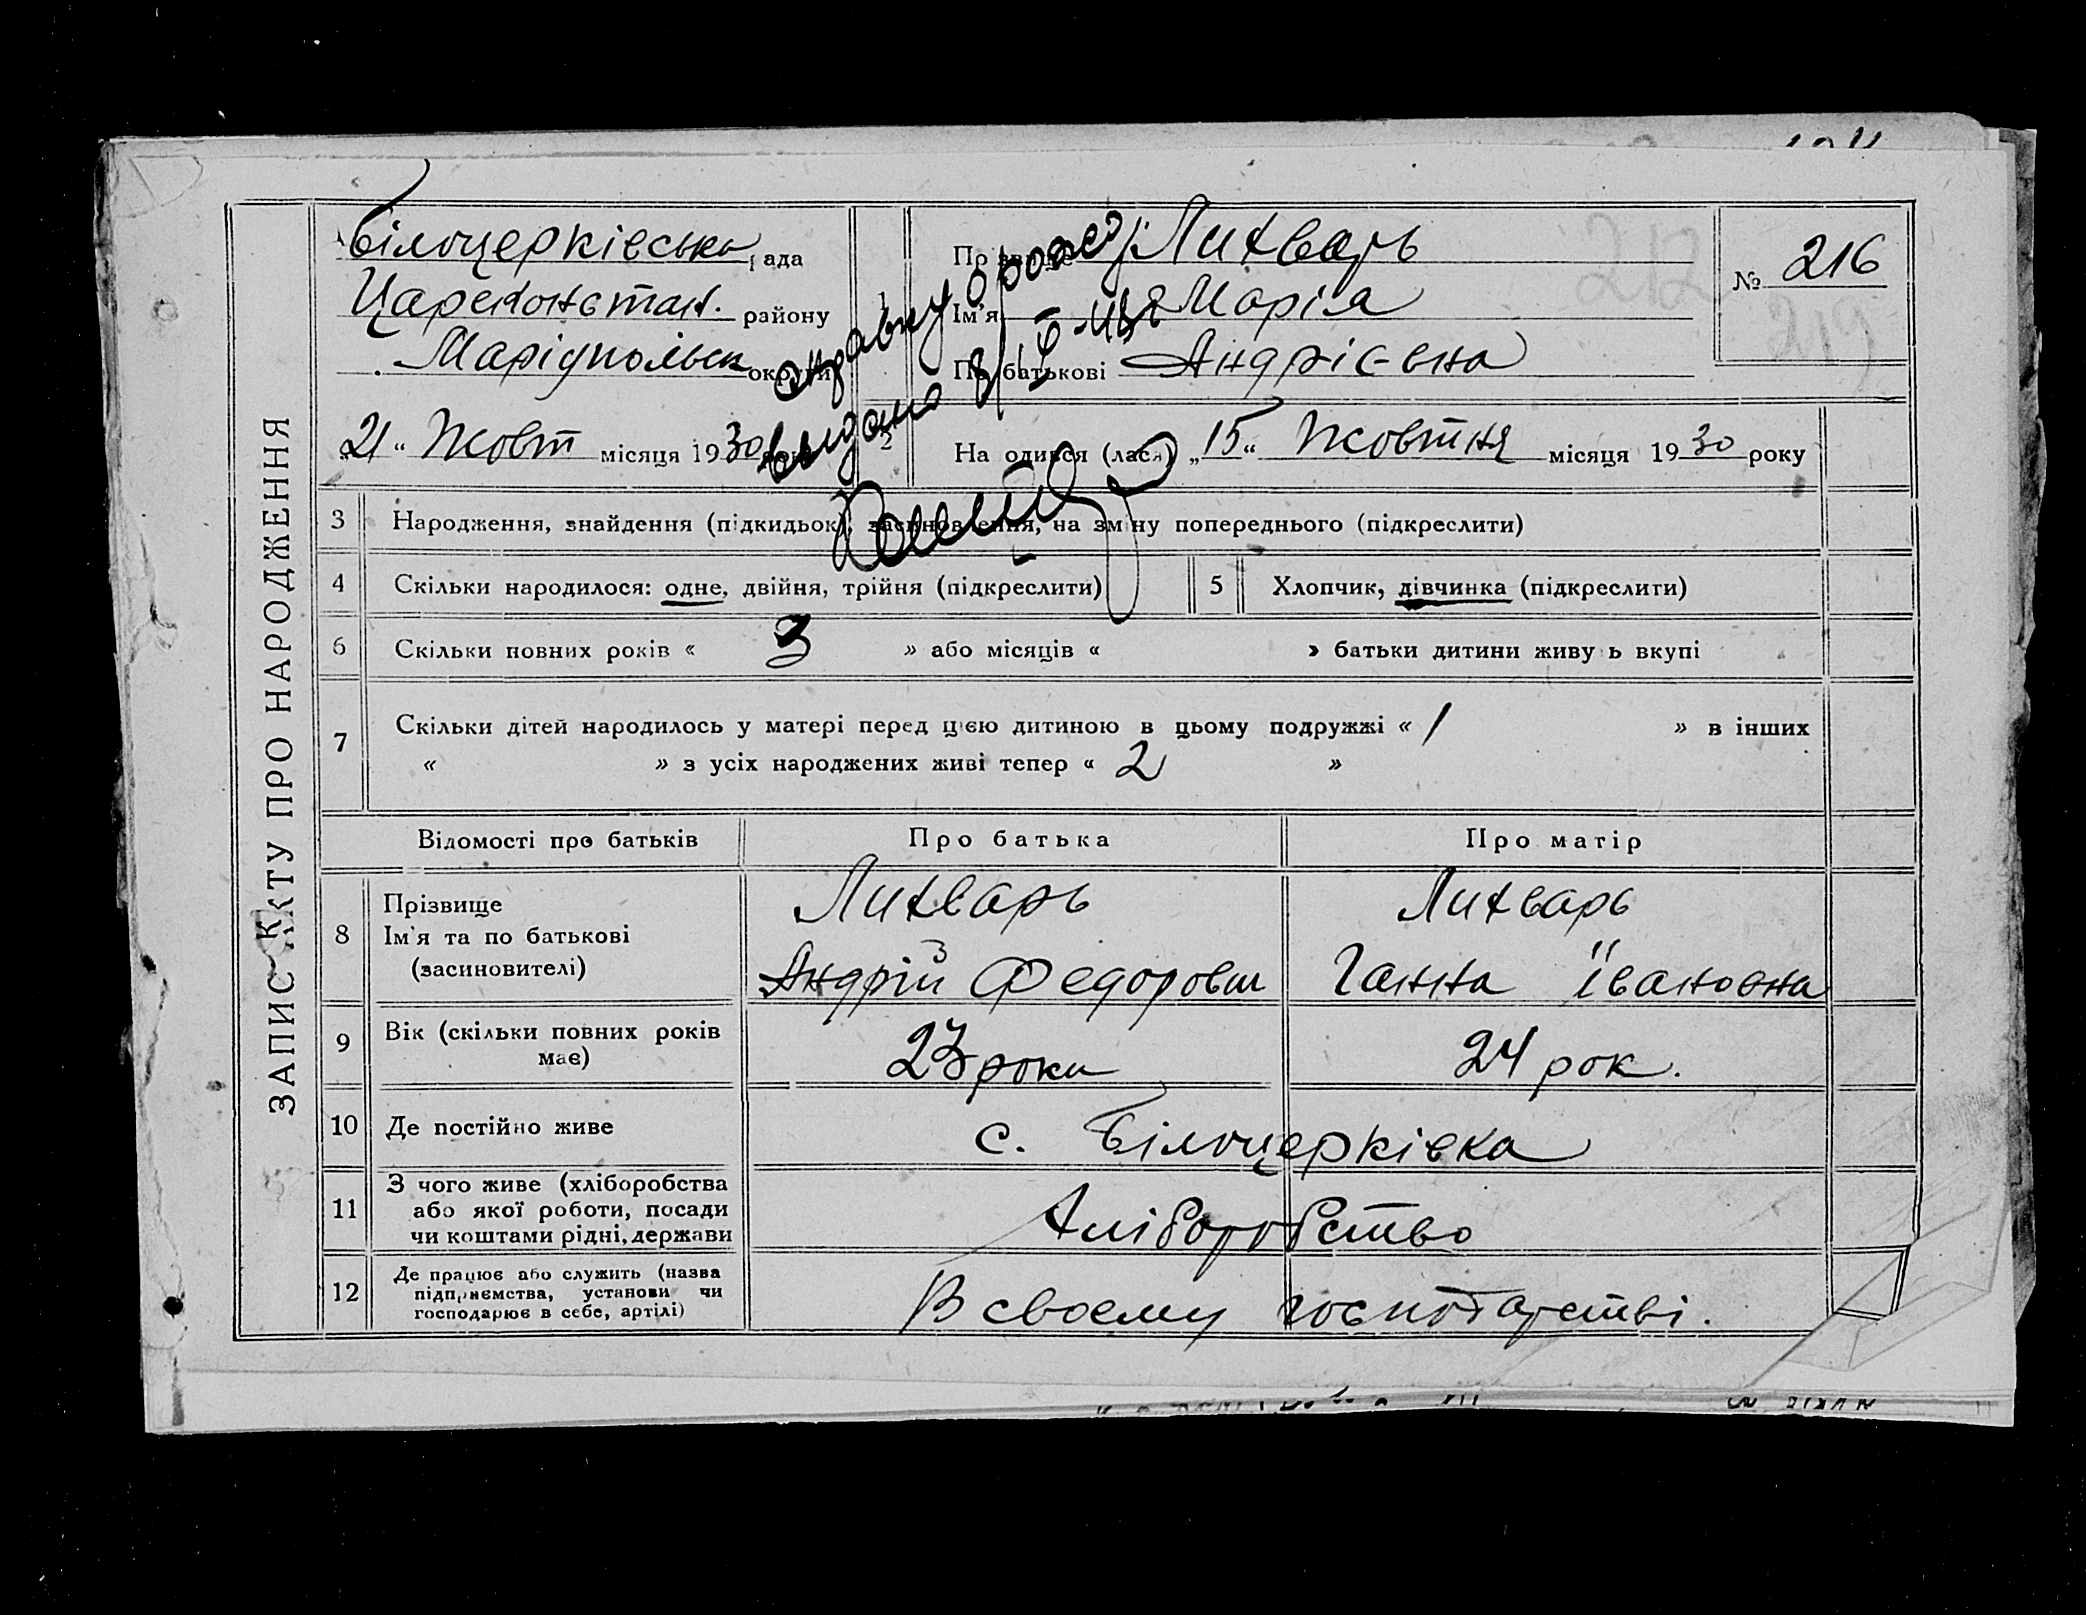 ЗАПИС АКТУ ПРО НАРОДЖЕННЯ
Білоцерківська рада
Цареконстан. району
Маріупольськ округи
„21“ Жовт місяця 1930 року
довідку о рожд.
выдано
1
Прізвище Лихварь
Ім'я Марія
По батькові Андрієвна
№ 216
212
219
2
На одився (лася) „15“ Жовтня місяця 1930 року
3 Народження, знайдення (підкидьок), засиновлення, на зміну попереднього (підкреслити)
4 Скільки народилося: одне, двійня, трійня (підкреслити)
5 Хлопчик, дівчинка (підкреслити)
6 Скільки повних років « 3 » або місяців « » батьки дитини живу ь вкупі
7 Скільки дітей народилось у матері перед цією дитиною в цьому подружжі « 1 » в інших
« » з усіх народжених живі тепер « 2 »
Відомості про батьків Про батька Про матір
8 Прізвище
Ім'я та по батькові
(засиновителі)
Лихварь
Андрій Федорович
Лихварь
Ганна Івановна
9 Вік (скільки повних років
має)
23 роки
24 рок.
10 Де постійно живе
с. Білоцерківка
11 З чого живе (хліборобства
або якої роботи, посади
чи коштами рідні, держави
Хліборобство
12 Де працює або служить (назва
підприємства, установи чи
господарює в себе, артілі)
В своему господарстві.